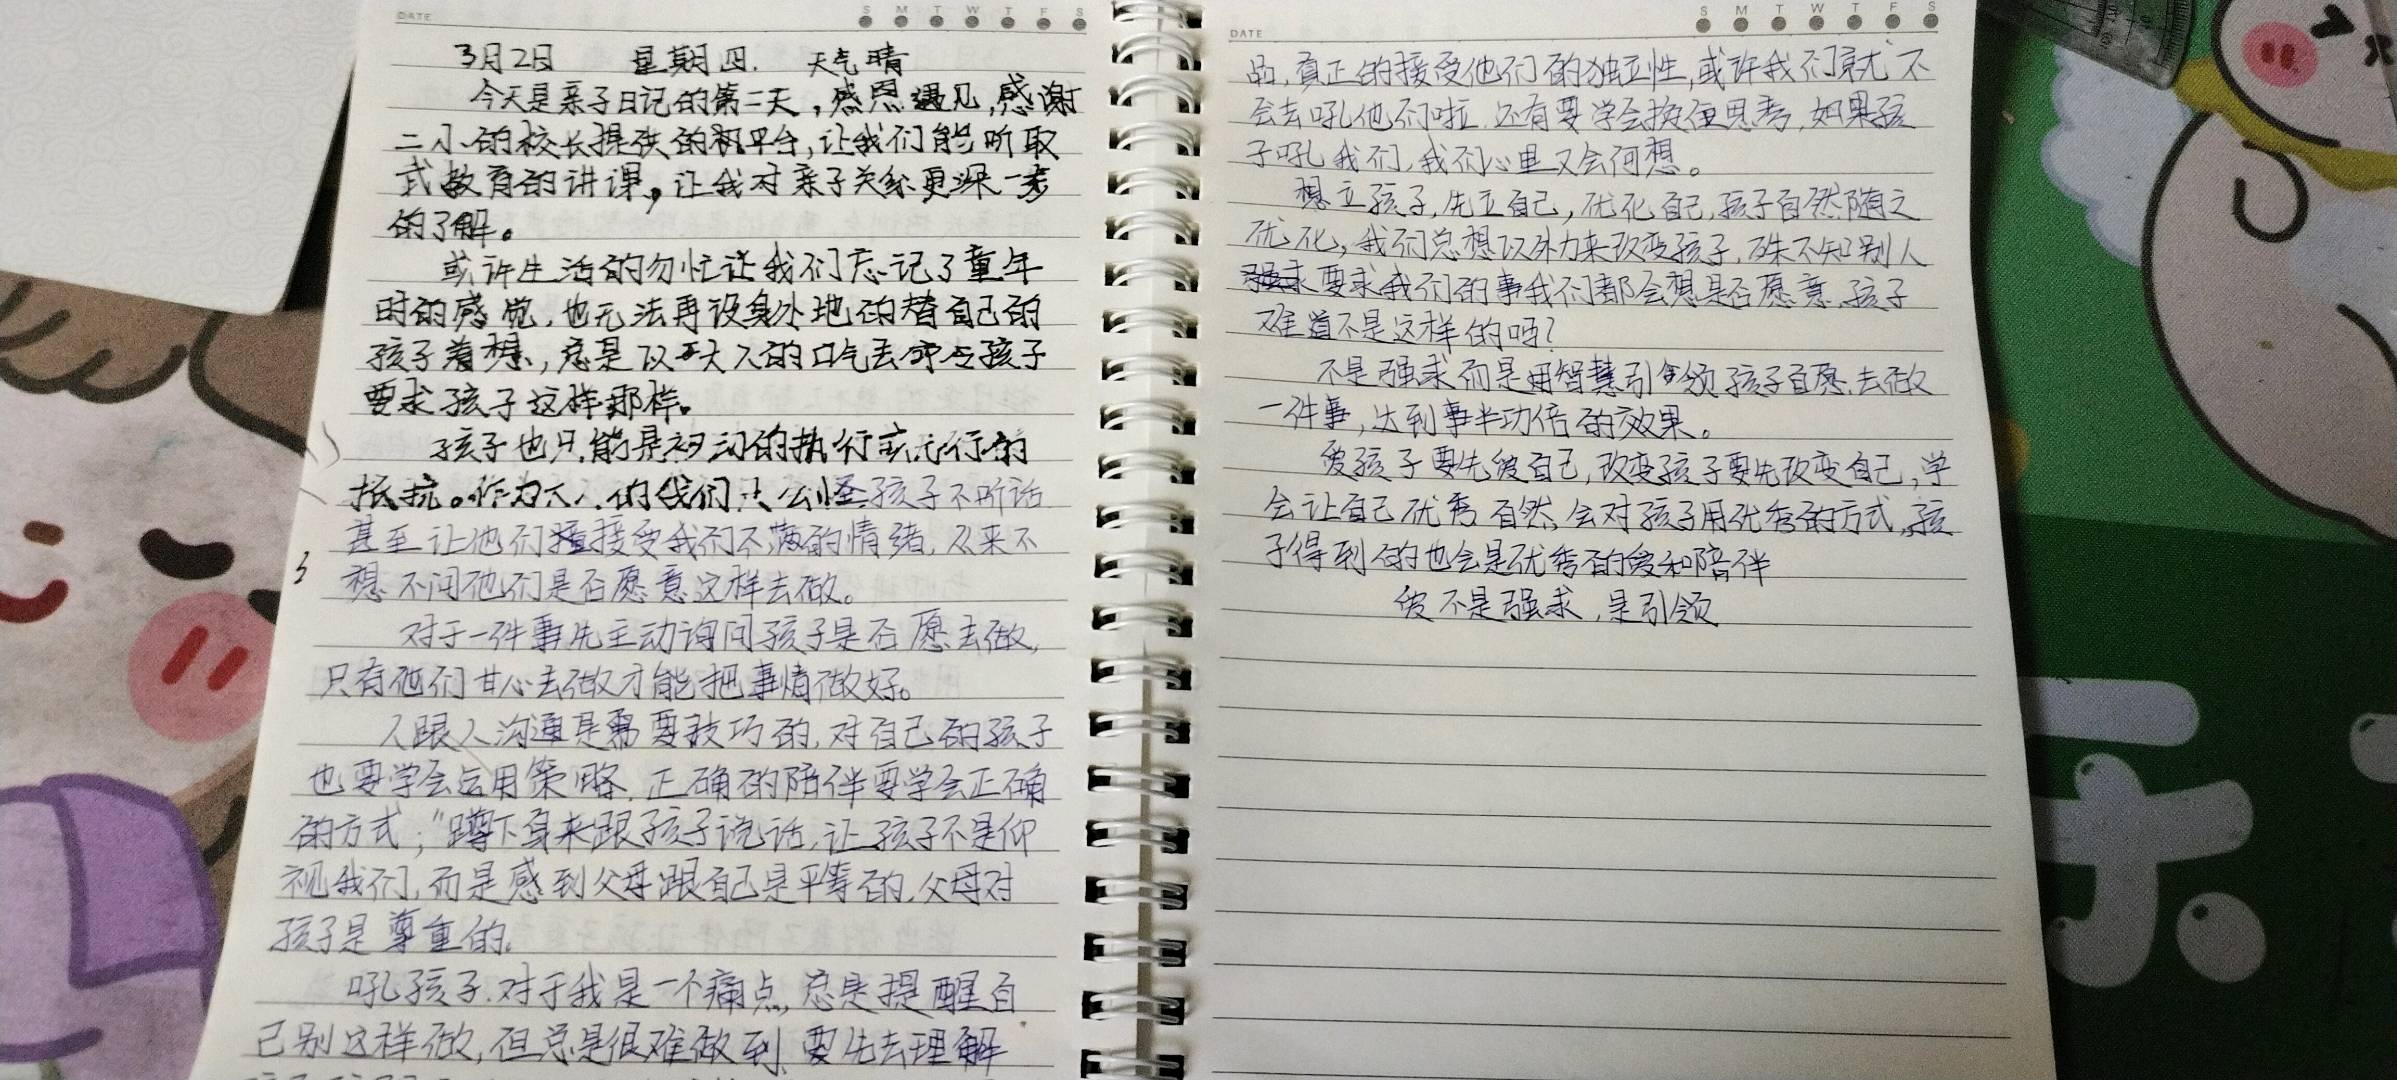 DATE
S M T W T F S
3月2日 星期四. 天气晴
今天是亲子日记的第二天，感恩遇见,感谢
二小的校长提供的机平台,让我们能听取
式教育的讲课，让我对亲子关系更深一步
的了解。
或许生活的匆忙让我们忘记了童年
时的感觉,也无法再设身处地的替自己的
孩子着想,总是以大人的口气去命令孩子
要求孩子这样那样。
孩子也只能是被动的执行或无行的
抵抗。作为大人的我们只会怪孩子不听话
甚至让他们接受我们不满的情绪,从来不
想不问他们是否愿意这样去做。
对于一件事先主动询问孩子是否愿去做,
只有他们甘心去做才能把事情做好。
人跟人沟通是需要技巧的,对自己的孩子
也要学会运用策略,正确的陪伴要学会正确
的方式;"蹲下身来跟孩子说话,让孩子不是仰
视我们,而是感到父母跟自己是平等的,父母对
孩子是尊重的.
吼孩子.对于我是一个痛点,总是提醒自
己别这样做,但总是很难做到,要先去理解
DATE
S M T W T F S
品,真正的接受他们的独立性,或许我们就不
会去吼他们啦.还有要学会换位思考,如果孩
子吼我们,我们心里又会何想。
想立孩子,先立自己,优化自己,孩子自然随之
优化,我们总想以外力来改变孩子,殊不知别人
要求我们的事我们都会想是否愿意,孩子
难道不是这样的吗?
不是强求而是用智慧引领孩子自愿去做
一件事,达到事半功倍的效果。
爱孩子要先爱自己,改变孩子要先改变自己,学
会让自己优秀自然会对孩子用优秀的方式,孩
子得到的也会是优秀的爱和陪伴
爱不是强求,是引领